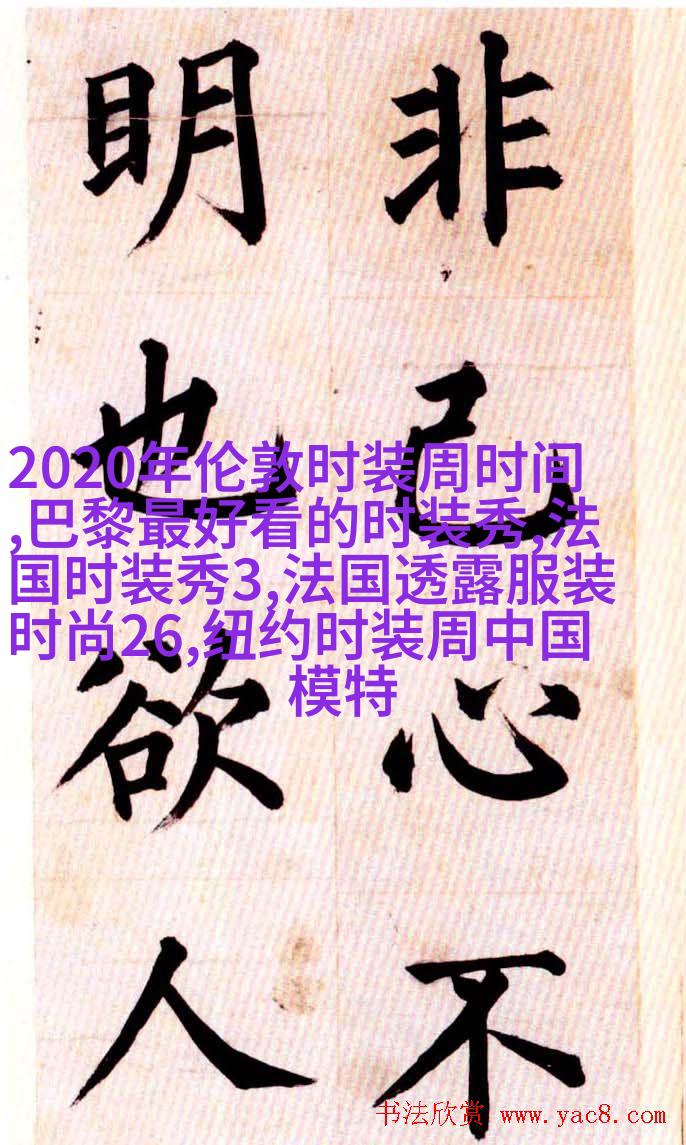 非己心不
明也欲人
2020年伦敦时装周时间
,巴黎最好看的时装秀,法
国时装秀3,法国透露服装
时尚26,纽约时装周中国
模特
书法欣赏 www.yac8.com